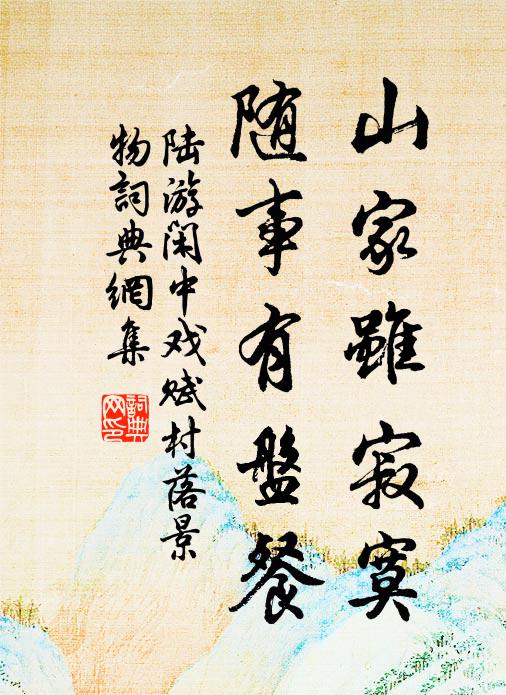 山家雖寂寞
随事有盤餐
陆游闲中戏赋村落景
物詞典網集
詞典
网印